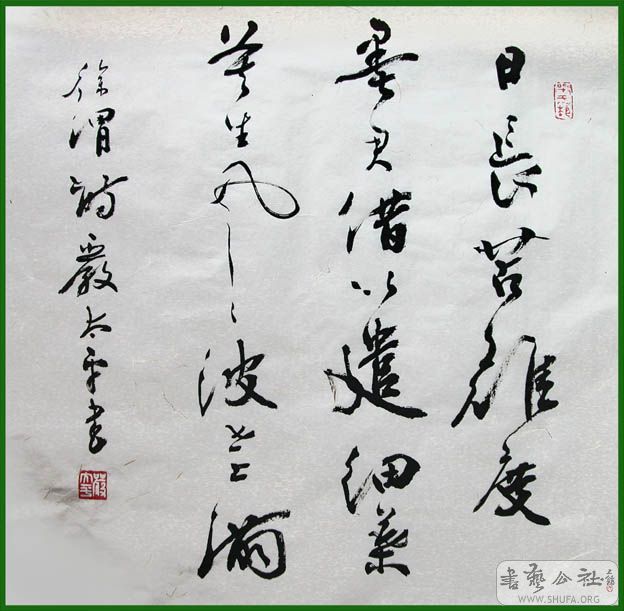 日長苦難度
墨君借以遣細葉
莫生風々波世上滿
徐渭詩嚴太平書
書藝公社
WWW.SHUFA.ORG